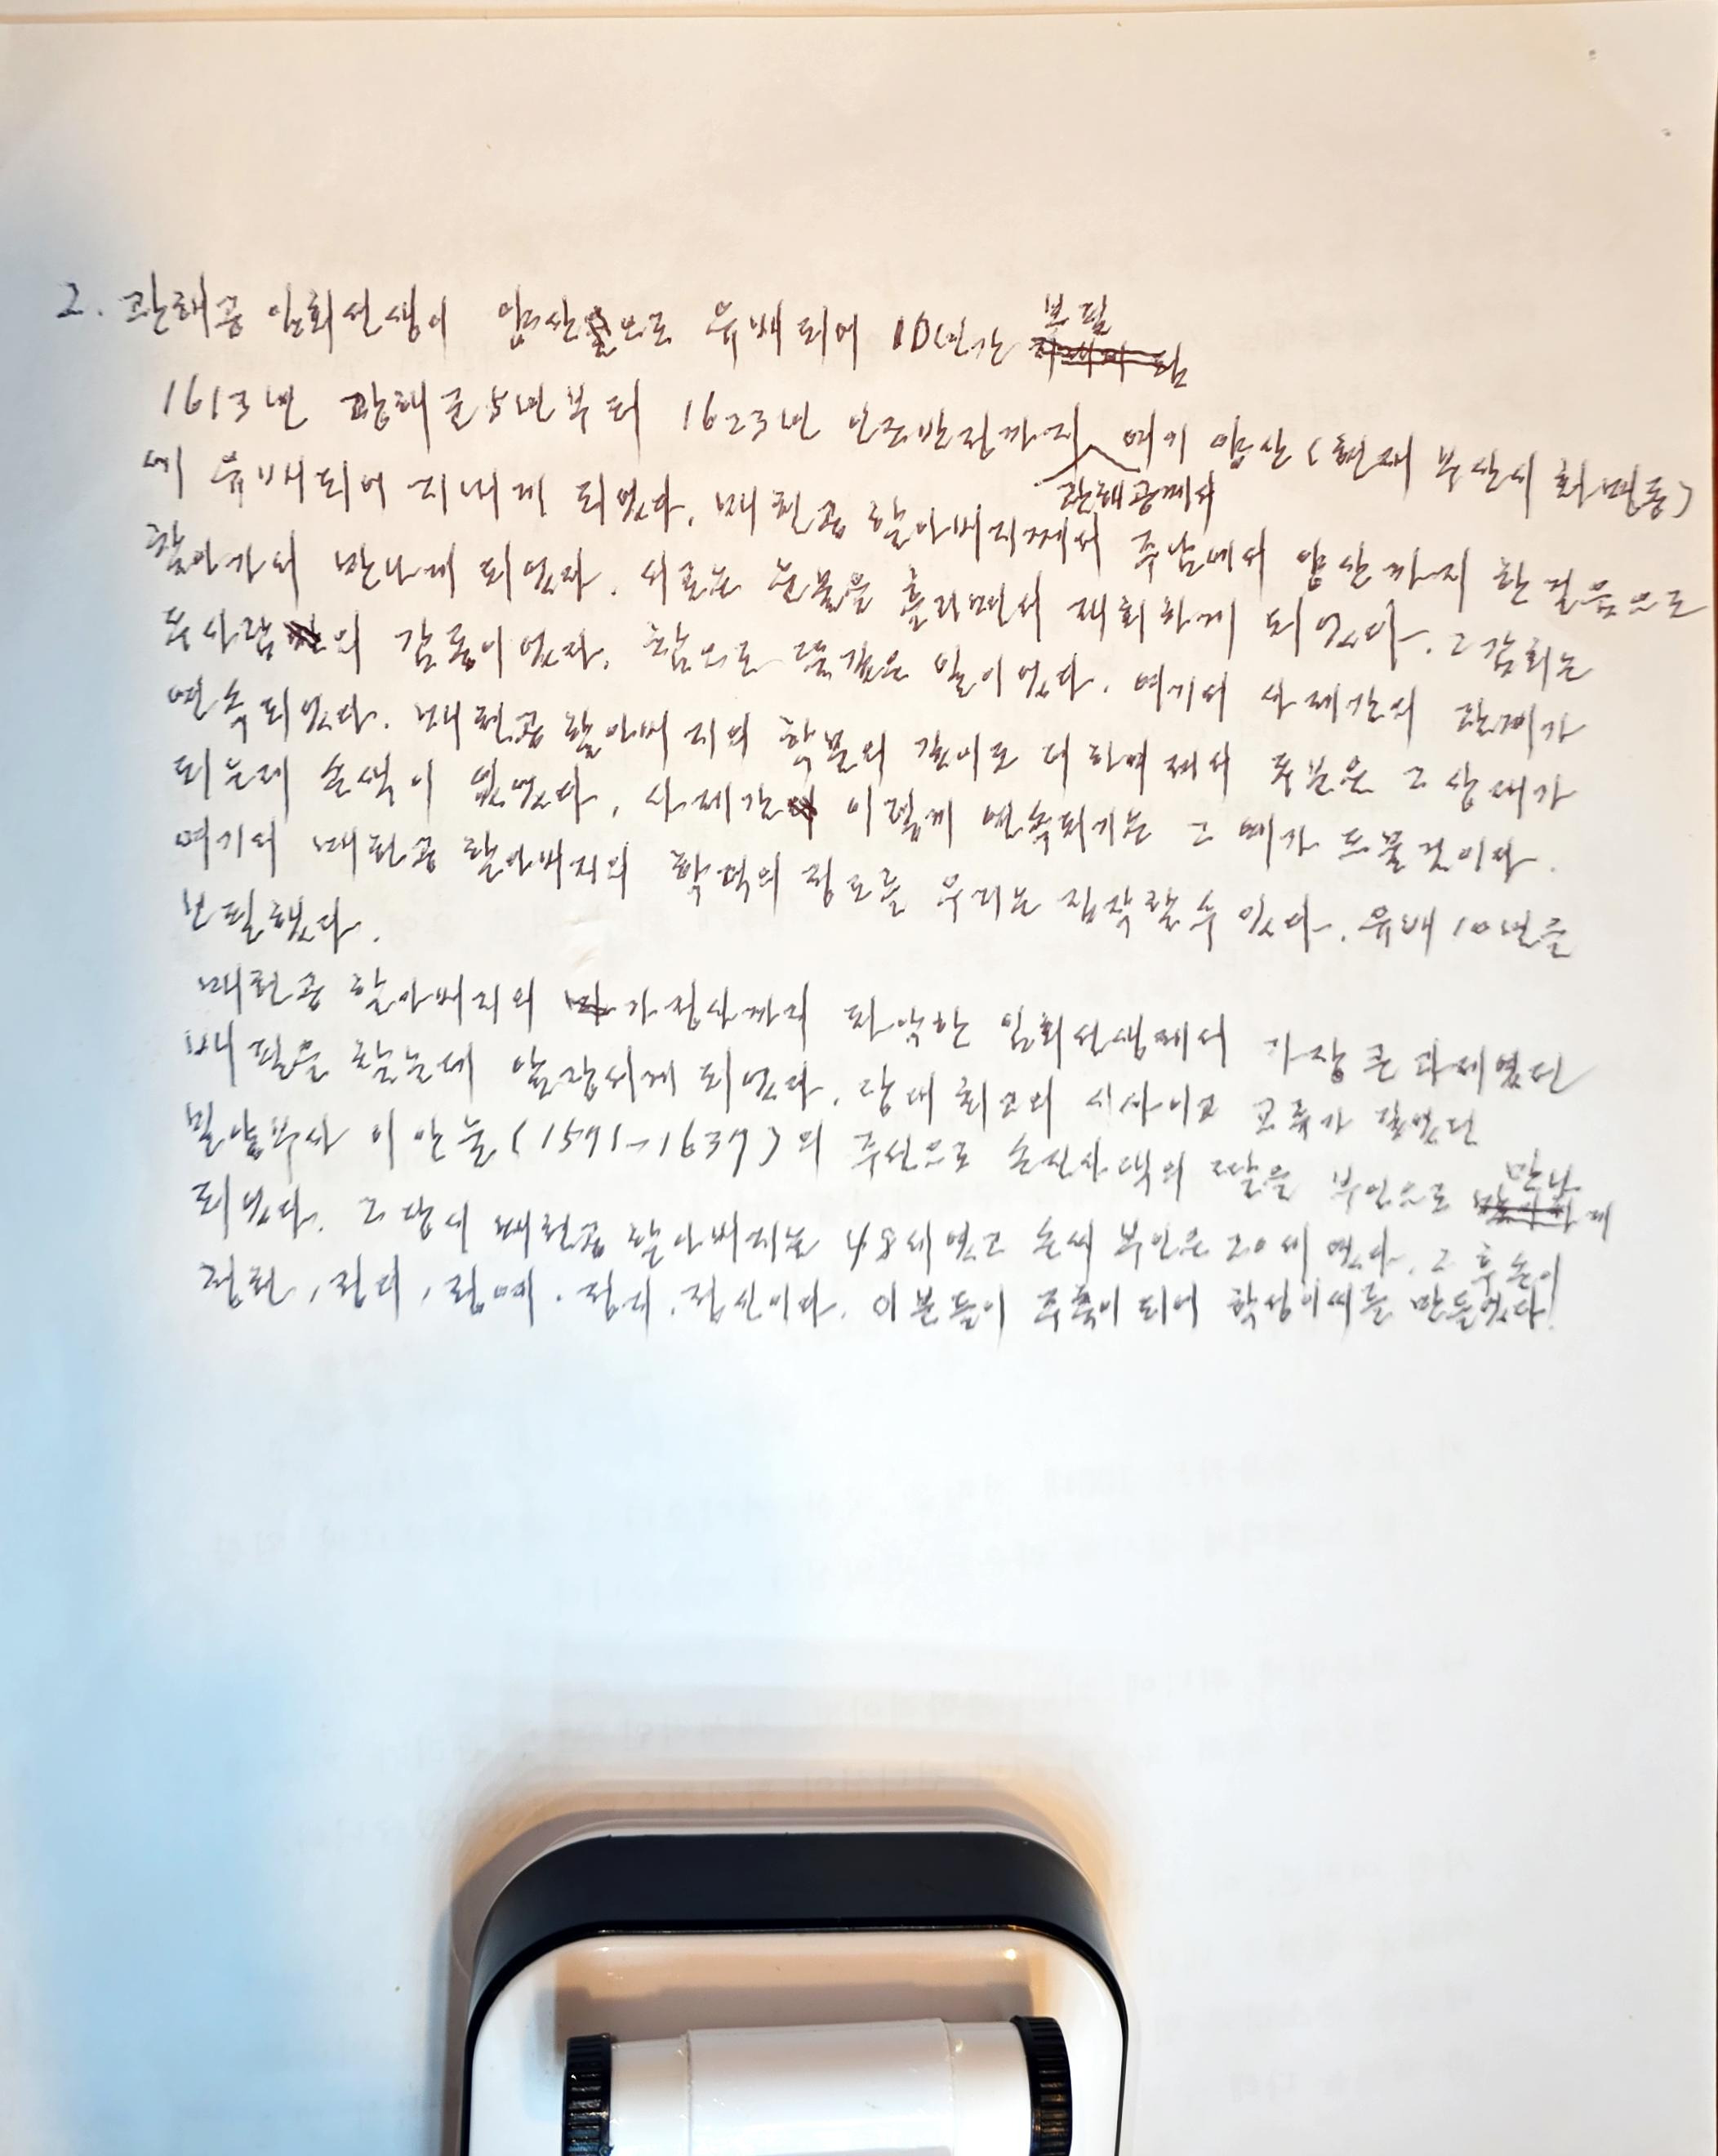 2. 관해공 임회선생이 양산으로 유배되어 10년간 보필
1613년 광해군 5년부터 1623년 인조반정까지 관해공께서 여기 양산(현재 부산시 회번동)
에 유배되어 지내게 되었다. 매헌공 할아버지께서 주남에서 양산까지 한걸음으로
찾아가서 만나게 되었다. 서로는 눈물을 흘리면서 재회하게 되었다. 그 감회는
두사람의 감동이었다. 참으로 뜻깊은 일이었다. 여기서 사제간의 관계가
연속되었다. 매헌공 할아버지의 학문의 깊이로 더하여져서 두분은 그 상대가
되는데 손색이 없었다. 사제간 이렇게 연속되기는 그 예가 드물것이다.
여기서 매헌공 할아버지의 학덕의 정도를 우리는 짐작할 수 있다. 유배 10년을
보필했다.
매헌공 할아버지의 가정사까지 파악한 임회선생께서 가장 큰 과제였던
배필을 찾는데 앞장서게 되었다. 당대 최고의 시사이고 교류가 깊었던
밀양부사 이안눌(1571~1637)의 주선으로 손진사댁의 딸을 부인으로 만나게
되었다. 그 당시 매헌공 할아버지는 48세였고 손씨 부인은 20세였다. 그 후손이
정헌, 정더, 정예. 정지. 정신이다. 이분들이 주축이 되어 학성이씨를 만들었다!